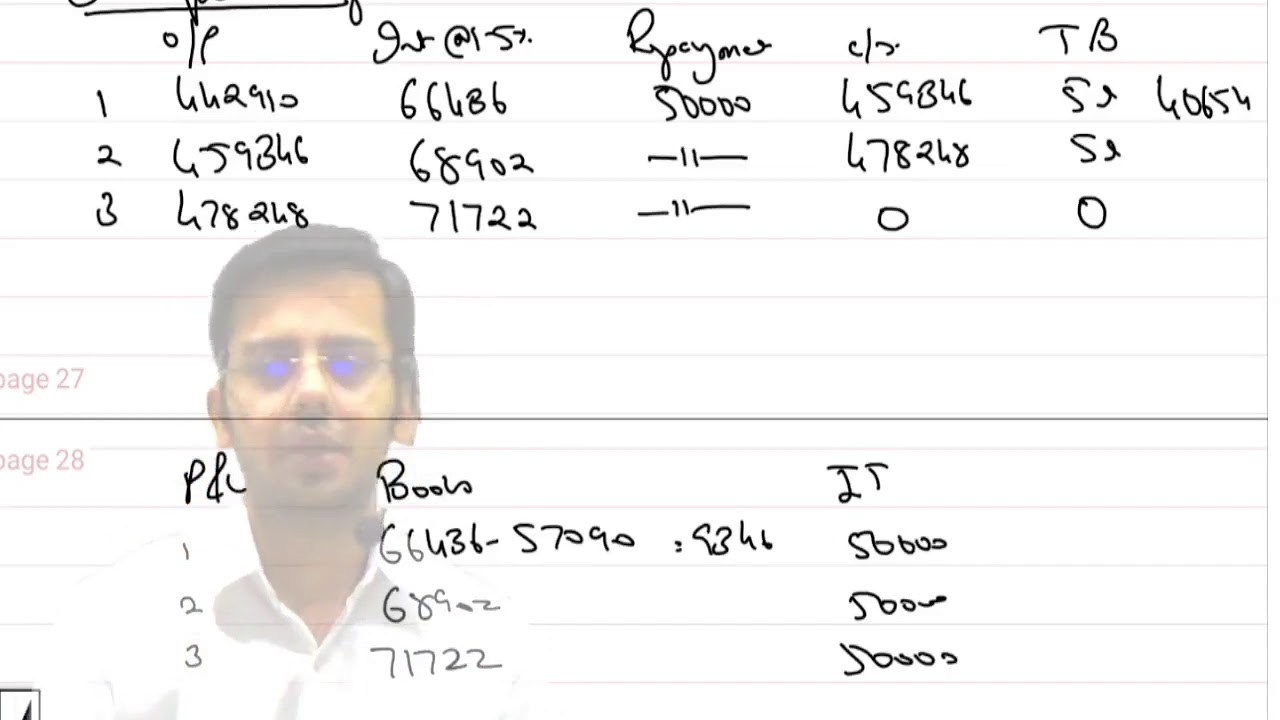 o/p Int @15% Repayment c/s TB
1 442910 66436 50000 459346 5L 40654
2 459346 68902 —11— 478248 5L
3 478248 71722 —11— 0 0
page 27
page 28
P&L Books IT
1 66436- 57090 : 9346 50000
2 68902 50000
3 71722 50000